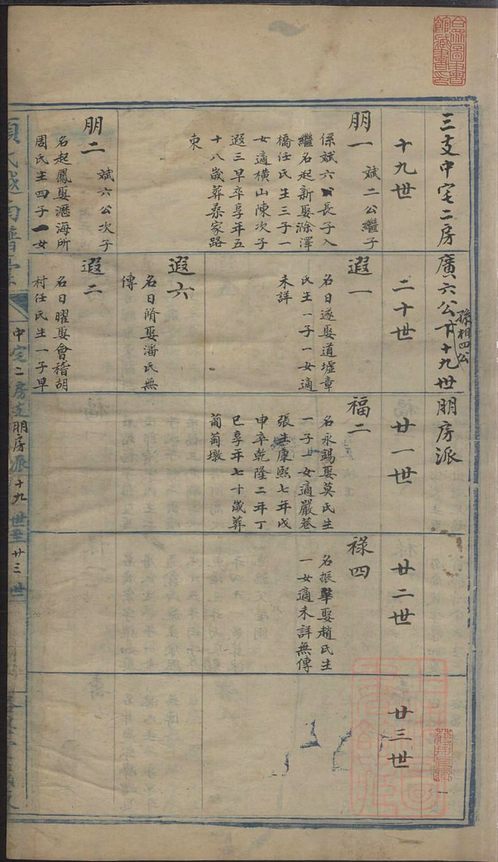 三支中宅二房廣六公下十九世朋房派
孫相四公
十九世
二十世
廿一世
廿二世
廿三世
朋一
斌二公繼子
係斌六公長子入
繼名起新娶涂澤
橋任氏生三子一
女適橫山陳次子
遐三早卒享年五
十八歲葬桑家路
東
遐一
名日遂娶道墟章
氏生一子一女適
未詳
福二
名永錫娶莫氏生
一子一女適嚴巷
張生康熙七年戊
申卒乾隆二年丁
巳享年七十歲葬
葡萄墩
禄四
名振聲娶趙氏生
一女適未詳無傳
遐六
名日隋娶潘氏無
傳
朋二
斌六公次子
名起鳳娶瀝海所
周氏生四子一女
遐二
名日曜娶會稽胡
村任氏生一子早
中宅二房支朋房派
十九世至廿三世